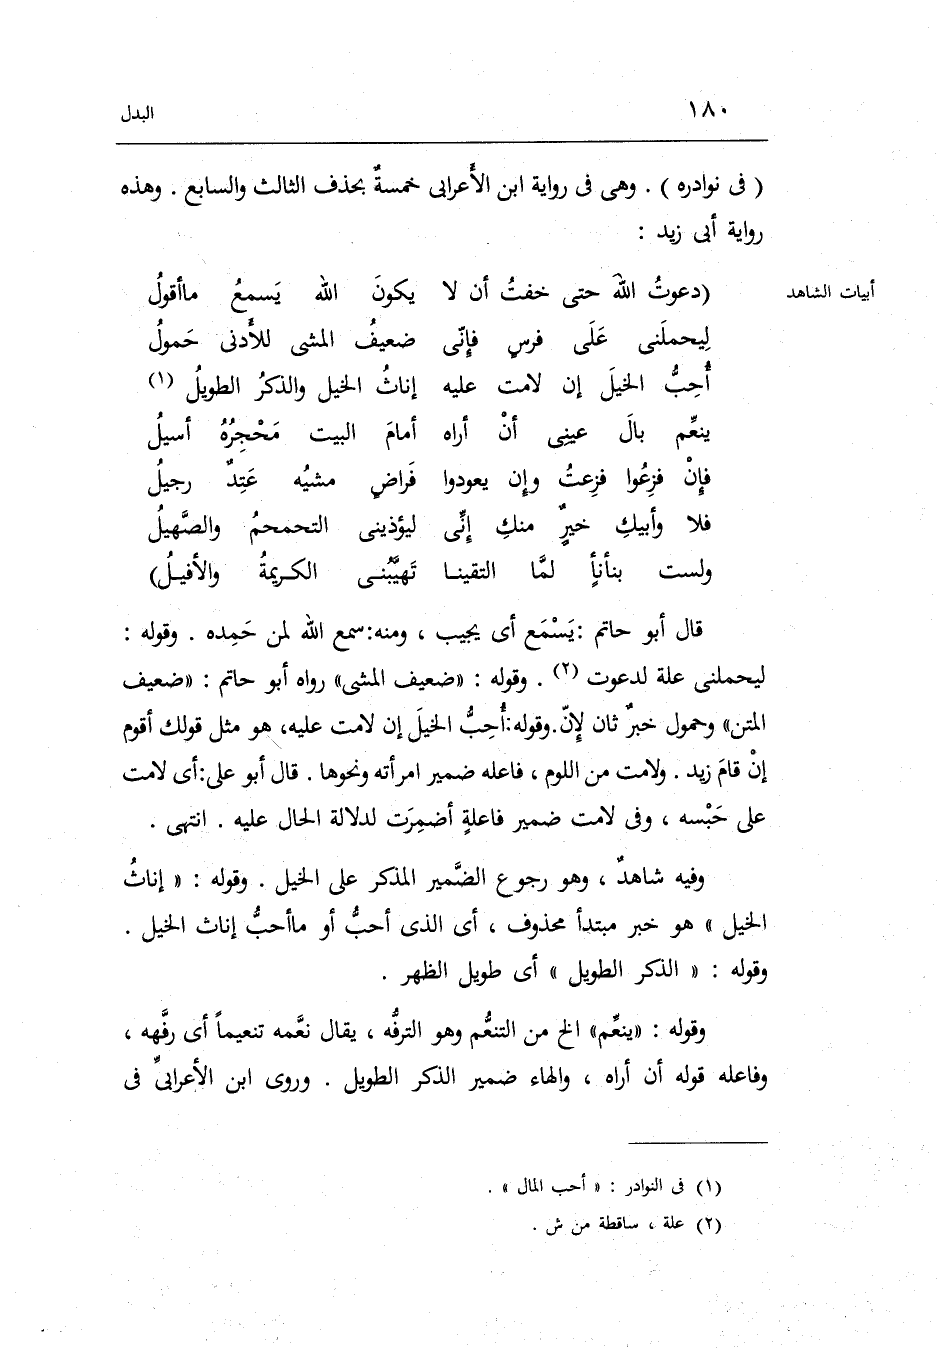 ١٨٠ البدل
( فى نوادره ) . وهى فى رواية ابن الأعرابى خمسةٌ بحذف الثالث والسابع . وهذه
رواية أبى زيد :
أبيات الشاهد
(دعوتُ اللهَ حتى خفتُ أن لا يكونَ الله يَسمعُ ماأقولُ
لِيحملَنى عَلَى فرسٍ فإِنّى ضعيفُ المشى للأَدنى حَمولُ
أُحِبُّ الخيلَ إن لامت عليه إناثُ الخيل والذكرُ الطويلُ (١)
ينعِّم بالَ عينِى أنْ أراه أمامَ البيت مَحْجِرُهُ أسيلُ
فإِنْ فزِعُوا فزِعتُ وإِن يعودوا فَراضٍ مشيُه عَتِدٌ رجيلُ
فلا وأبيكِ خيرٌ منكِ إنِّى ليؤذينى التحمحمُ والصَّهيلُ
ولست بنأنأٍ لمَّا التقينا تَهيَّبُنى الكريمةُ والأفيلُ)
قال أبو حاتم :يَسْمَع أى يجيب ، ومنه:سمع الله لمن حَمِده . وقوله :
ليحملنى علة لدعوت (٢) . وقوله : «ضعيف المشى» رواه أبو حاتم : «ضعيف
المتن» وحمول خبرٌ ثان لإِنّ.وقوله:أُحِبُّ الخيلَ إن لامت عليه، هو مثل قولك أقوم
إنْ قامَ زيد . ولامت من اللوم ، فاعله ضمير امرأته ونحوها . قال أبو على:أى لامت
على حَبْسه ، وفى لامت ضمير فاعلةٍ أضمِرَت لدلالة الحال عليه . انتهى .
وفيه شاهدٌ ، وهو رجوع الضَّمير المذكر على الخيل . وقوله : « إناثُ
الخيل » هو خبر مبتدأ محذوف ، أى الذى أحبُّ أو ماأحبُّ إناث الخيل .
وقوله : « الذكر الطويل » أى طويل الظهر .
وقوله : «ينعِّم» الخ من التنعُّم وهو الترفُّه ، يقال نعَّمه تنعيماً أى رفَّهه ،
وفاعله قوله أن أراه ، والهاء ضمير الذكر الطويل . وروى ابن الأعرابىِّ فى
(١) فى النوادر : « أحب المال » .
(٢) علة ، ساقطة من ش .